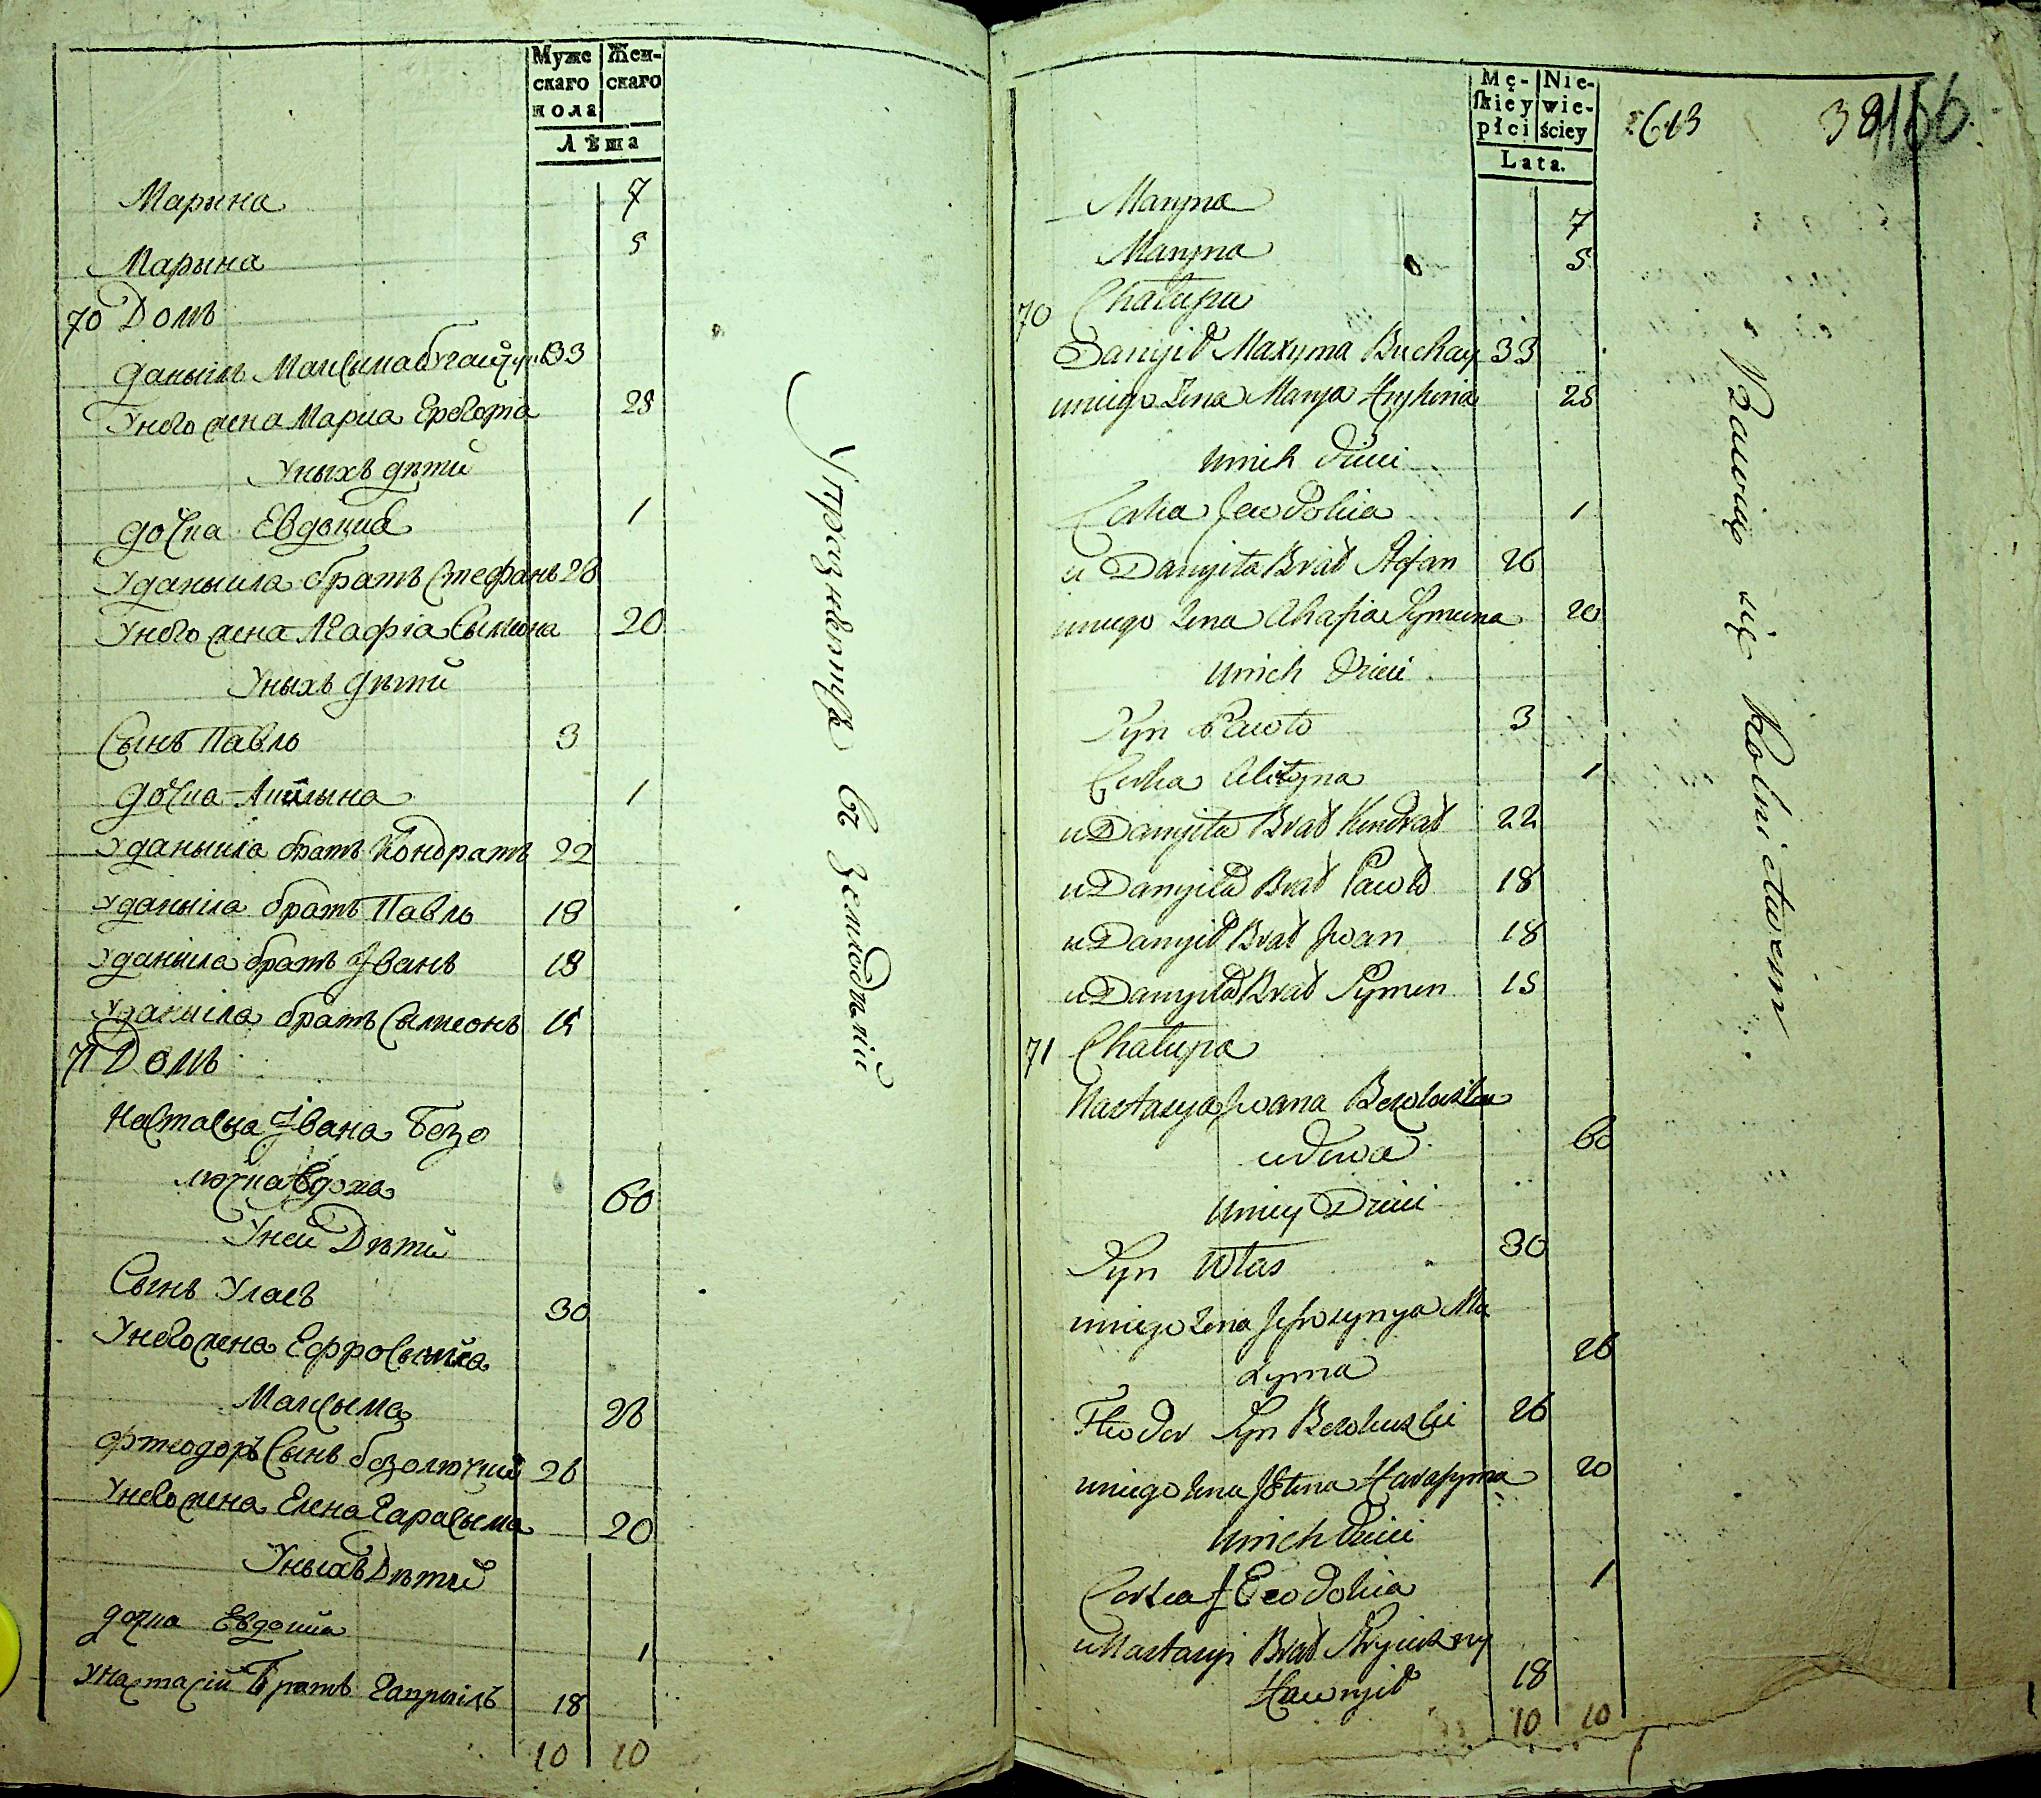 Муже Жен-
скаго скаго
пола
Лѣта
Марына 7
Марына 5
70 Домъ
Даныилъ Максима 33
Унего жена Мариа 28
Уныхъ дѣти
дочка Евдокиа 1
Уданыила братъ Стефанъ 26
Унего жена Агафіа Сымеона 20
Уныхъ дѣти
Сынъ Павло 3
дочка 1
Уданыила братъ Кондратъ 22
Уданыила братъ Павло 18
Уданыила братъ Іванъ 18
Уданыила братъ Сымеонъ 15
71 Домъ
Настасиа Івана Безо
лючка вдова 60
Уней Дѣти
Сынъ Уласъ 30
Унего жена Ефросыниа
Максыма 26
Фтеодоръ Сынъ безолючкий 26
Унего жена Елена Гарасыма 20
Уныхъ Дѣти
дочка Евдокиа 1
Унастасіи Братъ Гаврыилъ 18
10 10
Упражняются въ Земледѣліи
Mę- Nie-
skiey wie-
płci ściey
Lata.
613 38 156
Maryna 7
Maryna 5
70 Chałupa
Danyił Maxyma Buchay 33
uniego Żona Marya 28
unich Dzieci
Corka Jewdokia 1
u Danyiła Brat Stefan 26
uniego Żona Ahafia Symeona 20
unich Dzieci
Syn Pawło 3
Corka 1
u Danyiła Brat Kondrat 22
u Danyiła Brat Pawło 18
u Danyiła Brat Jwan 18
u Danyiła Brat Symen 15
71 Chałupa
Nastasya Jwana
udowa 60
uniey Dzieci
Syn Własʼ 30
uniego Żona Jefrosynya Ma
xyma 26
Fteodor Syn 26
uniego Żona Harasyma 20
unich Dzieci
Corka Jewdokia 1
u Nastasyi Brat
Hawryił 18
10 10
Bawią się Rolnictwem